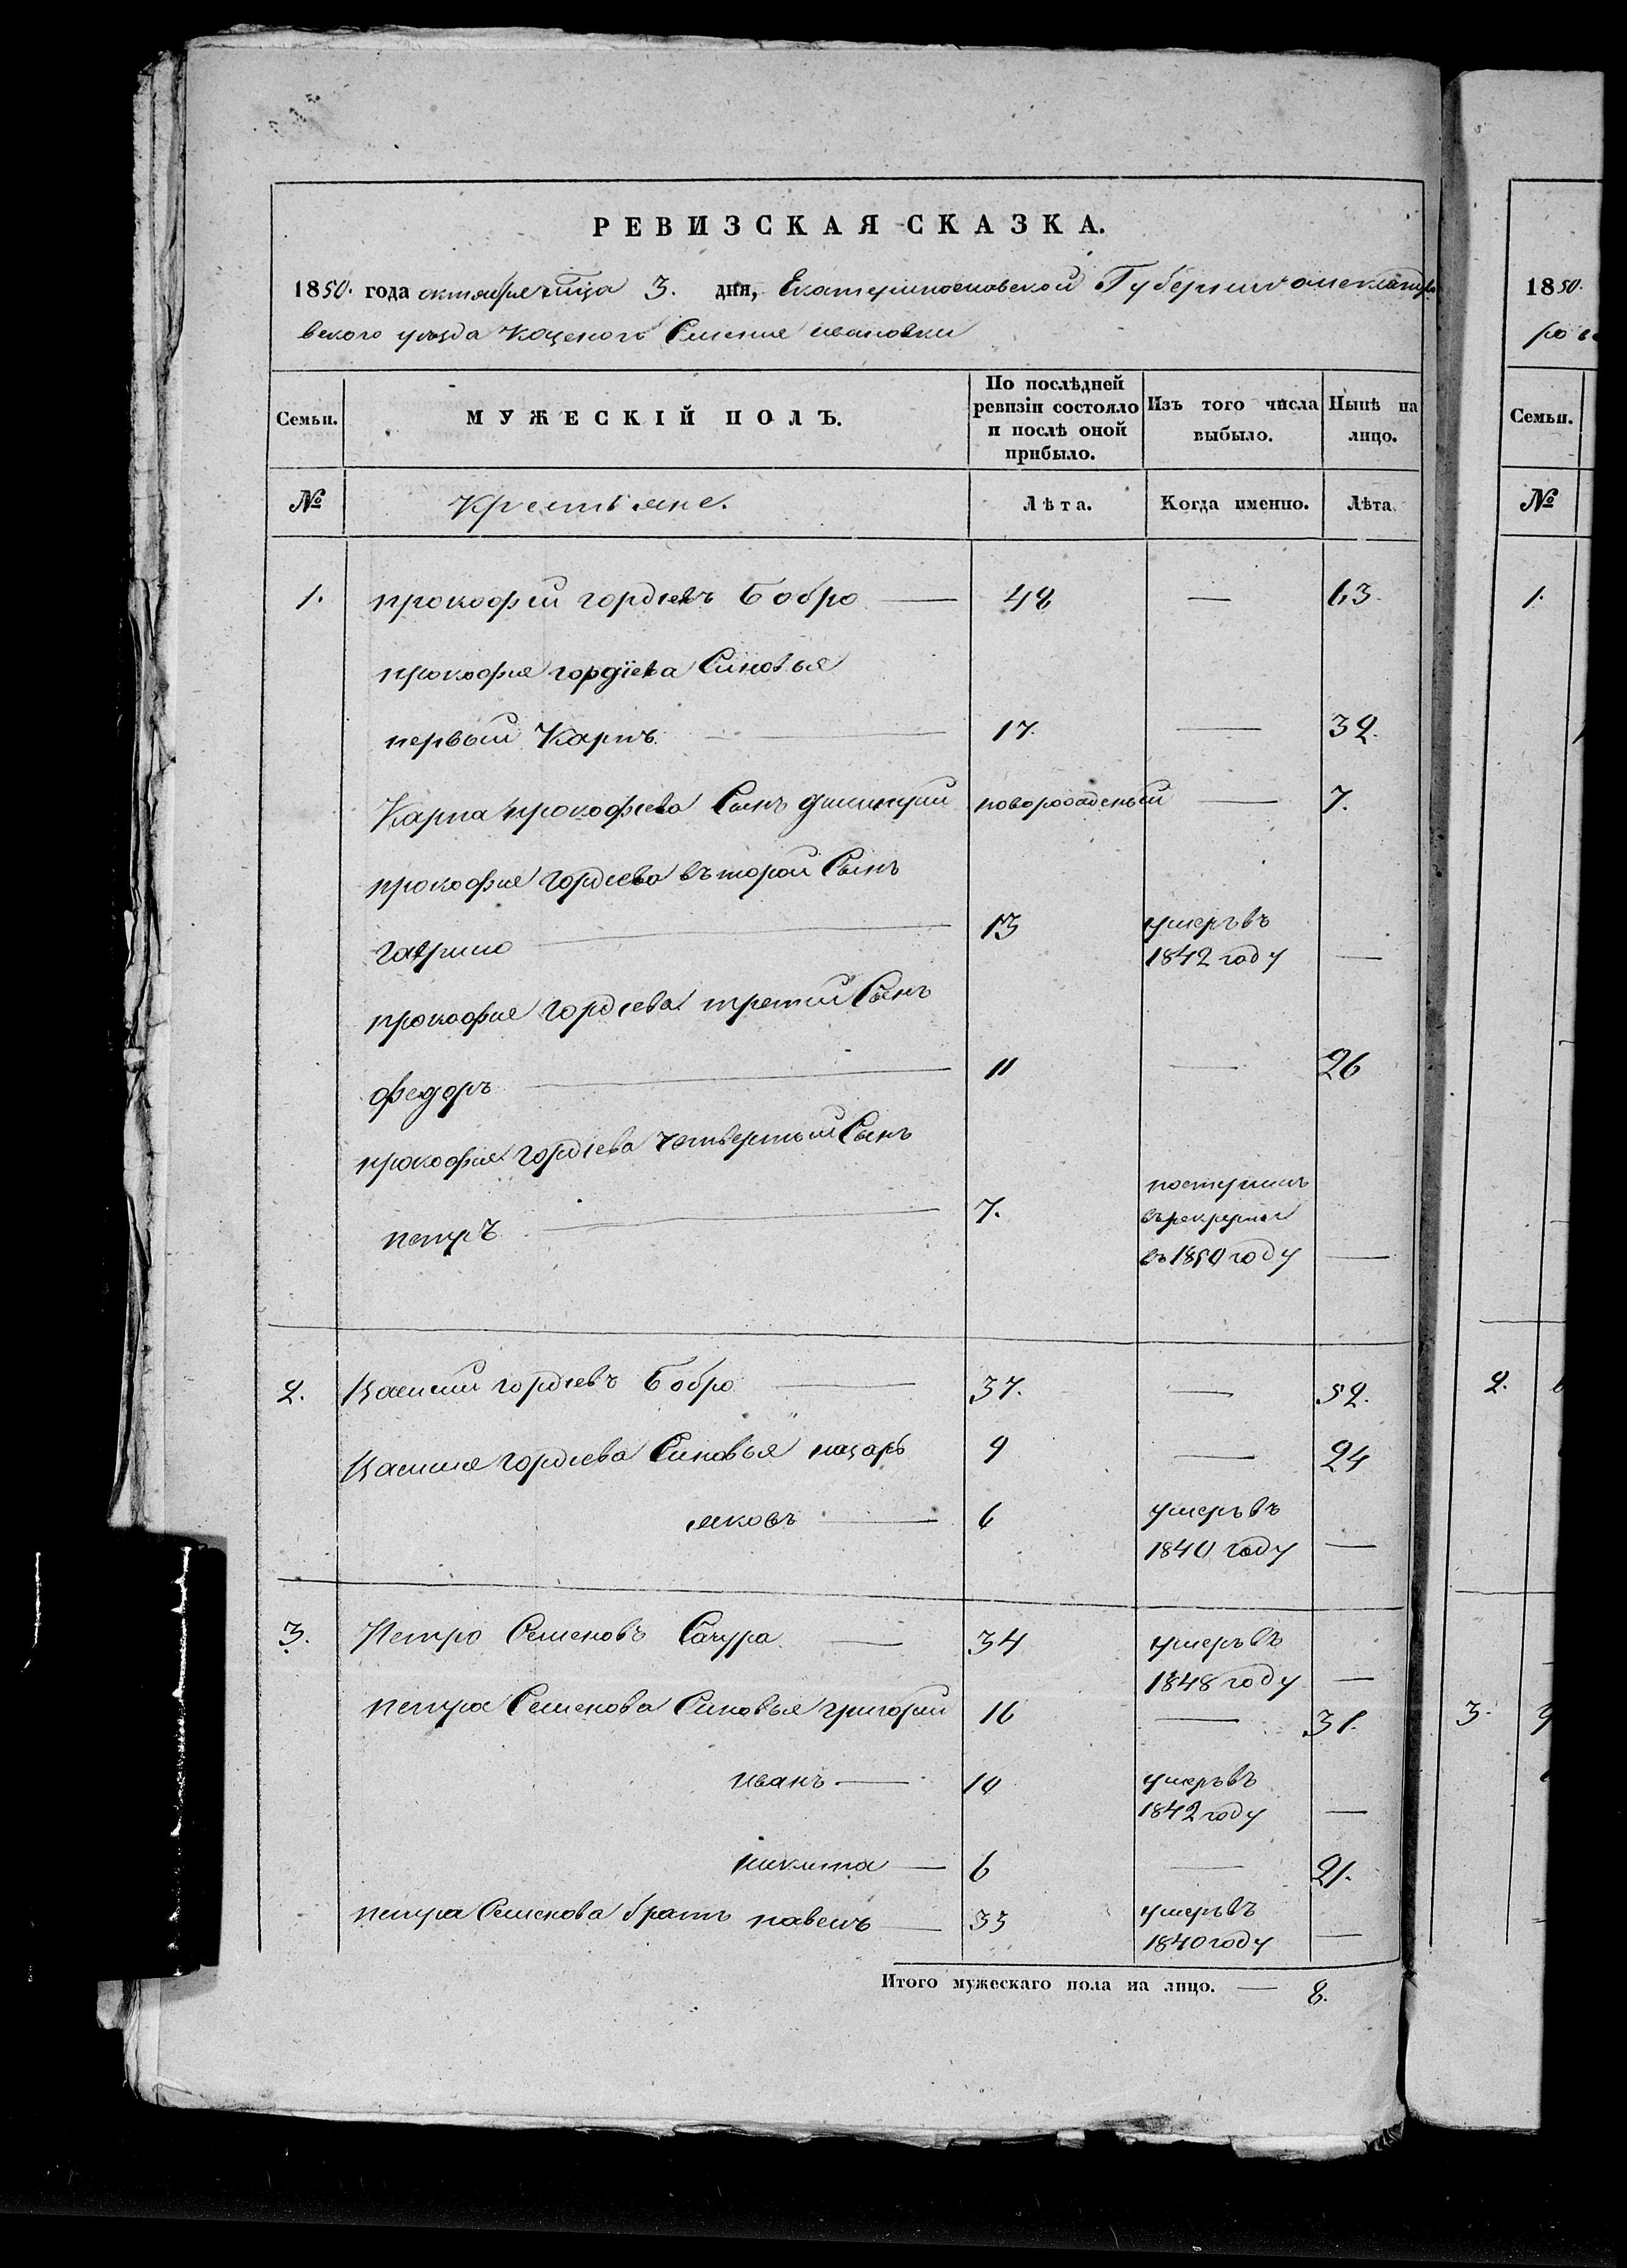 РЕВИЗСКАЯ СКАЗКА.
1850. года октября мца 3. дня, Екатеринославской Губернии александро
вского уезда Имения ивановки
Семьи. МУЖЕСКІЙ ПОЛЪ. По послѣдней ревизіи состояло и послѣ оной прибыло. Изъ того числа выбыло. Нынѣ на лицо.
№ Крестьяне. Лѣта. Когда именно. Лѣта.
1. прокофий гордіевъ Бобро — 48 — 63.
прокофия гордіева Синовья
первый Карпъ — 17. — 32.
Карпа прокофіева Сынъ дмитрий новорожденый — 7.
прокофия гордіева въторой Сынъ
гаврило — 13 умеръ въ
1842 году —
прокофия гордіева третий Сынъ
федоръ — 11 — 26
прокофия гордіева четвертый Сынъ
петръ — 7. поступилъ
въ рекруты
въ 1850 году —
2. Василий гордіевъ Бобро — 37. — 52.
Василия гордіева Синовья назаръ 9 — 24
яковъ — 6 умеръ въ
1840 году —
3. Петро Семеновъ Сачура — 34 умеръ въ
1848 году —
петра Семенова Синовья григорий 16 — 31.
иванъ — 10 умеръ въ
1842 году —
никита — 6 — 21.
петра Семенова братъ павелъ — 33 умеръ въ
1840 году —
Итого мужескаго пола на лицо. — 8.
1850.
Семьи.
№
1.
2.
3.